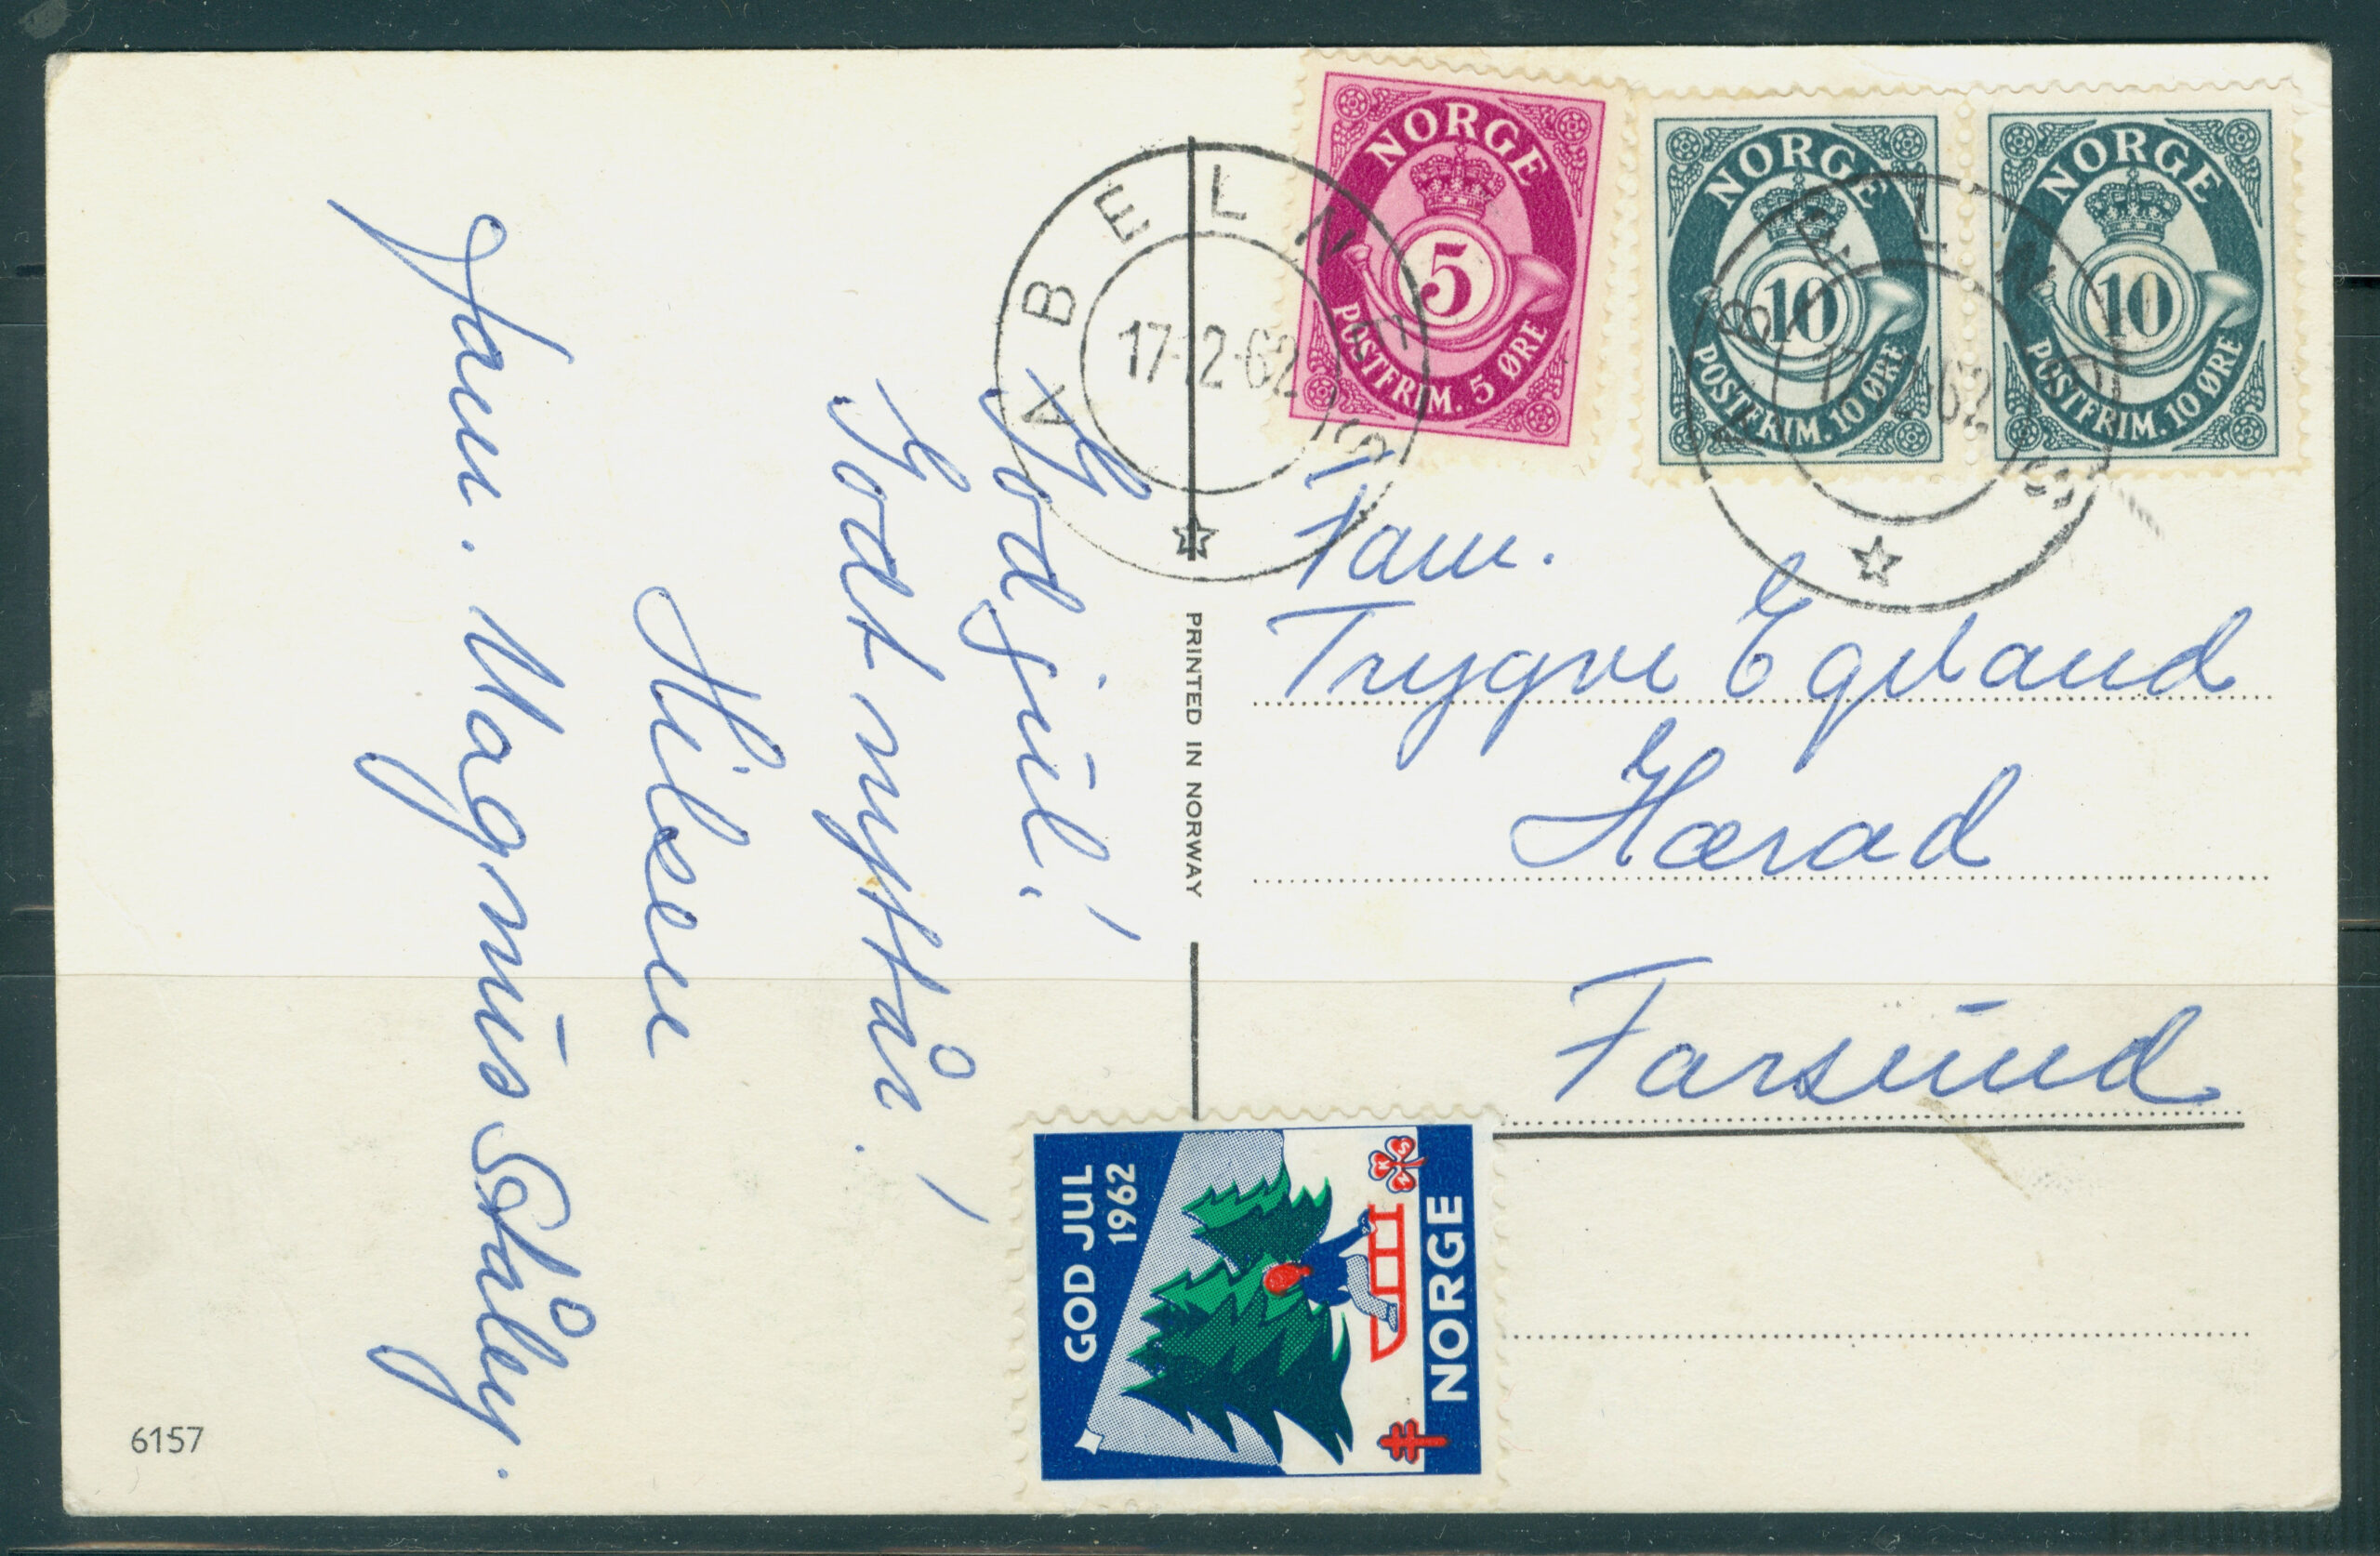 God jul!
Godt nyttår!
Hilsen
Fam. Magnus Ståley.
6157
PRINTED IN NORWAY
ABELNES
17-12-62
NORGE
5
POSTFRIM. 5 ØRE
NORGE
10
POSTFRIM. 10 ØRE
NORGE
10
POSTFRIM. 10 ØRE
Fam.
Trygve Egeland
Herad
Farsund
GOD JUL
1962
NORGE